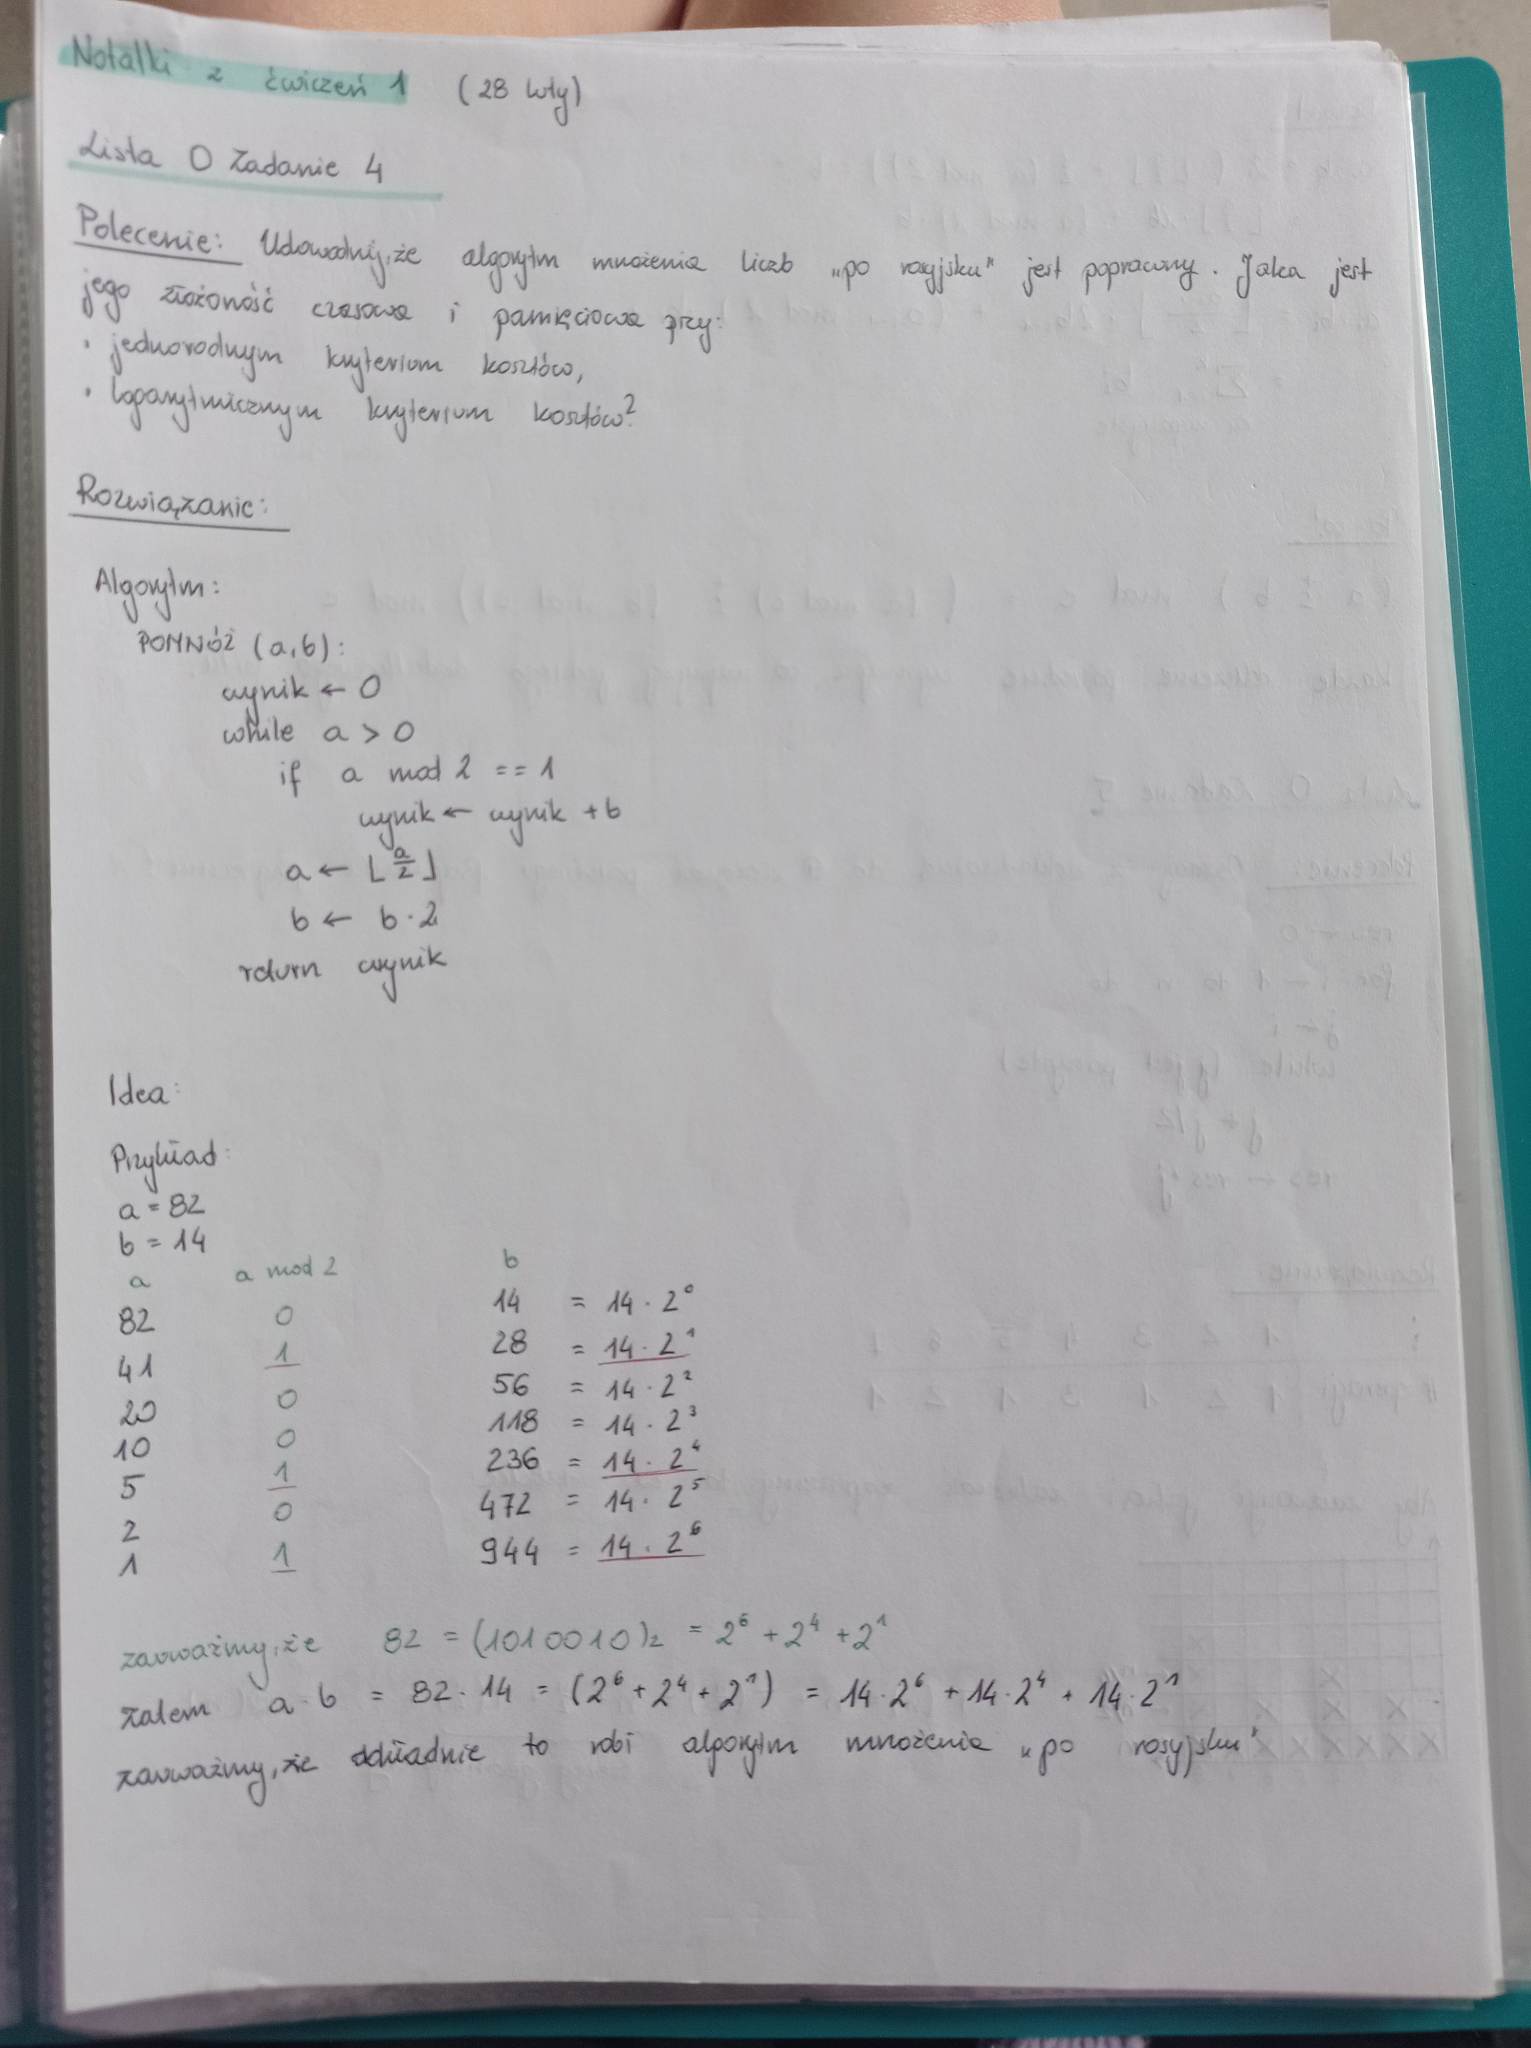 Notatki z ćwiczeń 1 (28 luty)
Lista 0 Zadanie 4
Polecenie: Udowodnij, że algorytm mnożenia liczb „po rosyjsku" jest poprawny. Jaka jest
jego złożoność czasowa i pamięciowa przy:
• jednorodnym kryterium kosztów,
• logarytmicznym kryterium kosztów?
Rozwiązanie:
Algorytm:
POMNÓŻ (a,b):
wynik ← 0
while a > 0
if a mod 2 == 1
wynik ← wynik + b
a ← ⌊a/2⌋
b ← b·2
return wynik
Idea:
Przykład:
a = 82
b = 14
a a mod 2 b
82 0 14 = 14 · 2⁰
41 1 28 = 14 · 2¹
20 0 56 = 14 · 2²
10 0 118 = 14 · 2³
5 1 236 = 14 · 2⁴
2 0 472 = 14 · 2⁵
1 1 944 = 14 · 2⁶
zauważmy, że 82 = (1010010)₂ = 2⁶ + 2⁴ + 2¹
zatem a·b = 82·14 = (2⁶ + 2⁴ + 2¹) = 14·2⁶ + 14·2⁴ + 14·2¹
zauważmy, że dokładnie to robi algorytm mnożenia „po rosyjsku"